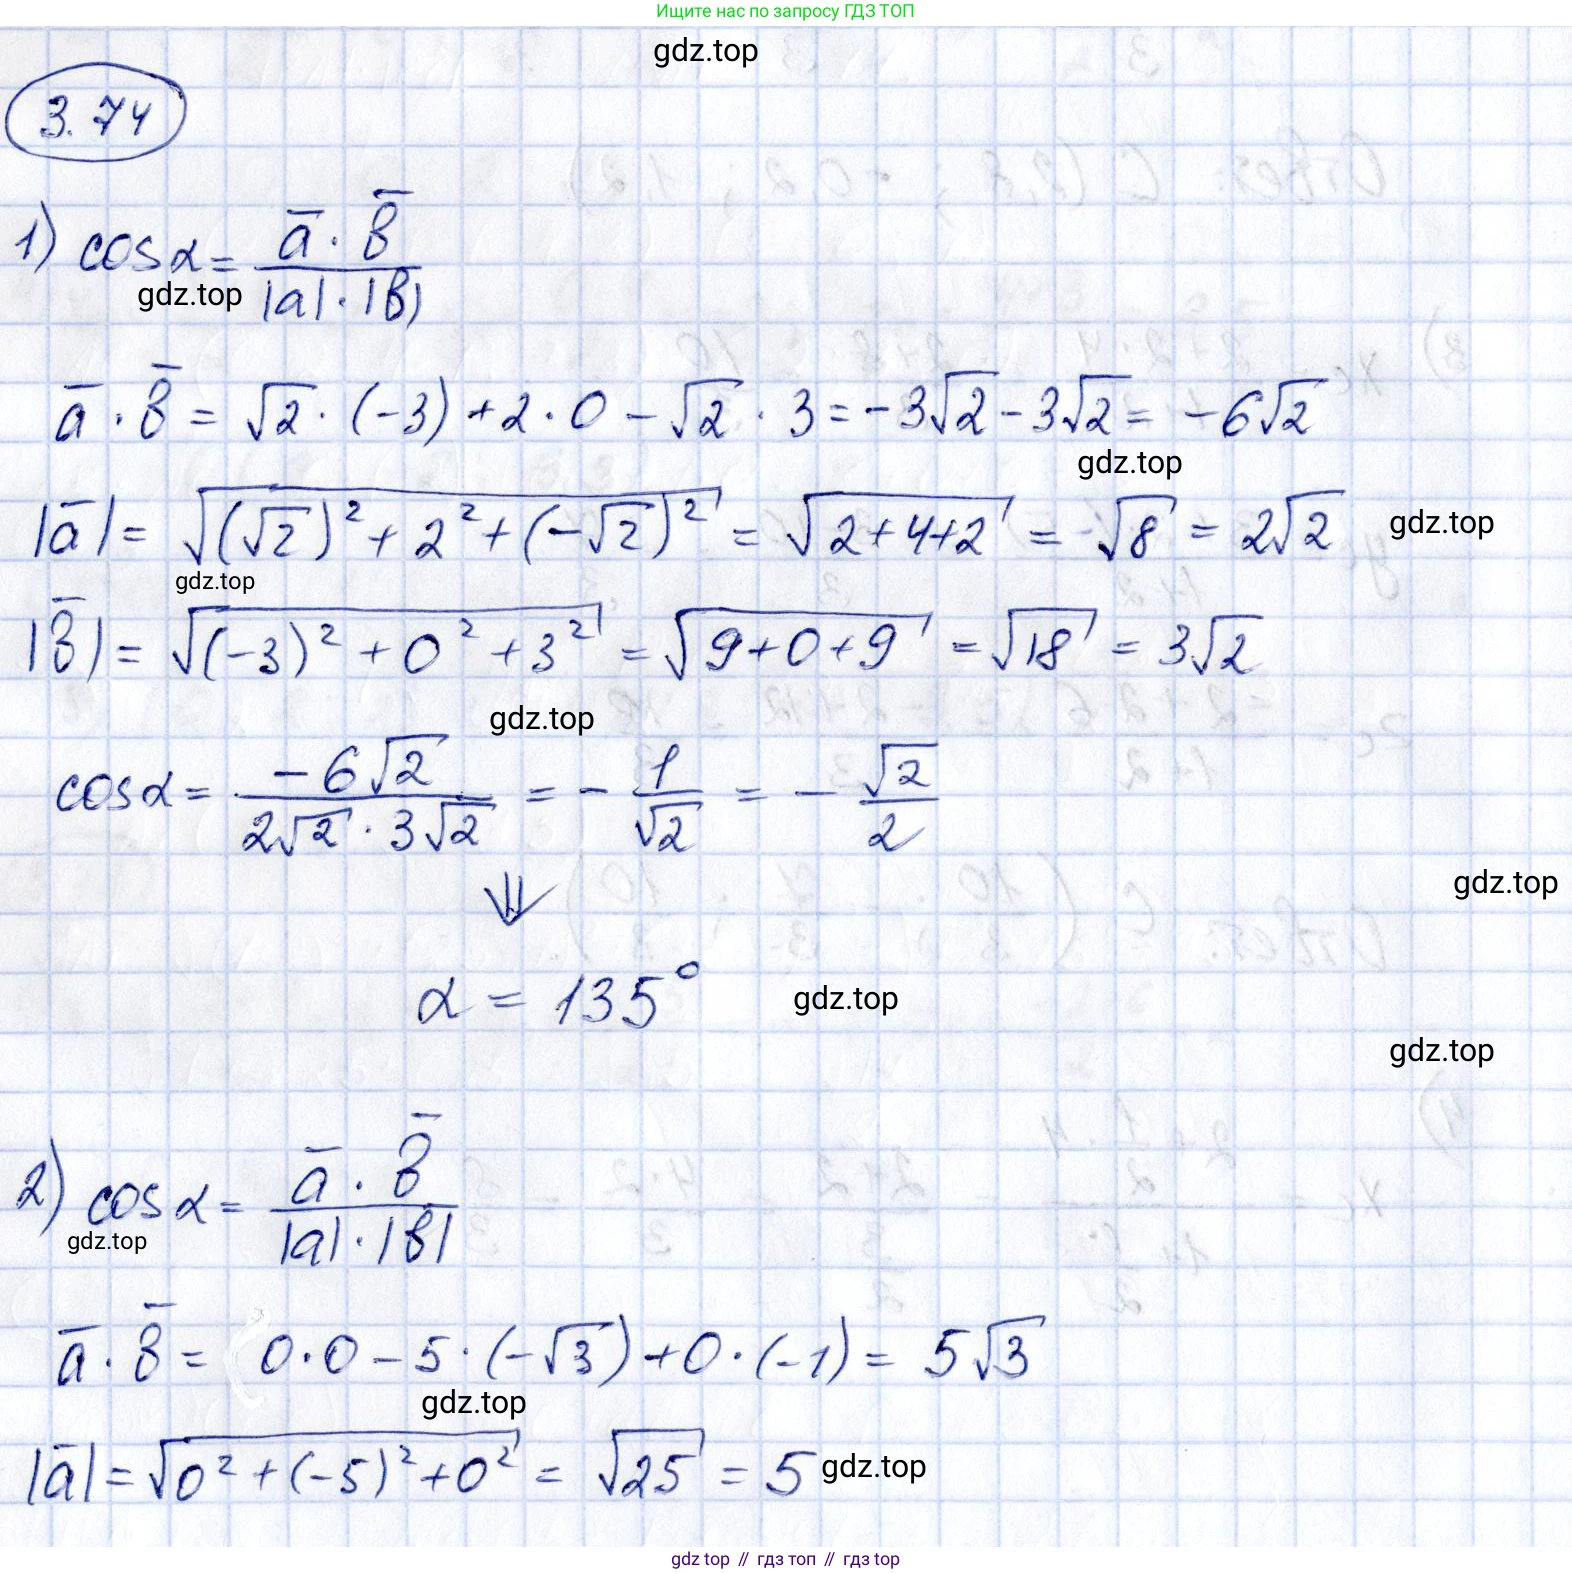 Ищите нас по запросу ГДЗ ТОП
gdz.top
3.74
1) cos α = a̅ · b̅ / |a| · |b|
gdz.top
a̅ · b̅ = √2 · (-3) + 2 · 0 - √2 · 3 = -3√2 - 3√2 = -6√2
gdz.top
|a̅| = √((√2)² + 2² + (-√2)²) = √(2+4+2) = √8 = 2√2
gdz.top
gdz.top
|b̅| = √((-3)² + 0² + 3²) = √(9+0+9) = √18 = 3√2
gdz.top
cos α = -6√2 / 2√2 · 3√2 = - 1/√2 = - √2/2
gdz.top
⇓
α = 135°
gdz.top
gdz.top
2) cos α = a̅ · b̅ / |a| · |b|
gdz.top
a̅ · b̅ = 0·0 - 5·(-√3) + 0·(-1) = 5√3
gdz.top
|a̅| = √(0² + (-5)² + 0²) = √25 = 5
gdz.top
gdz top // гдз топ // гдз top